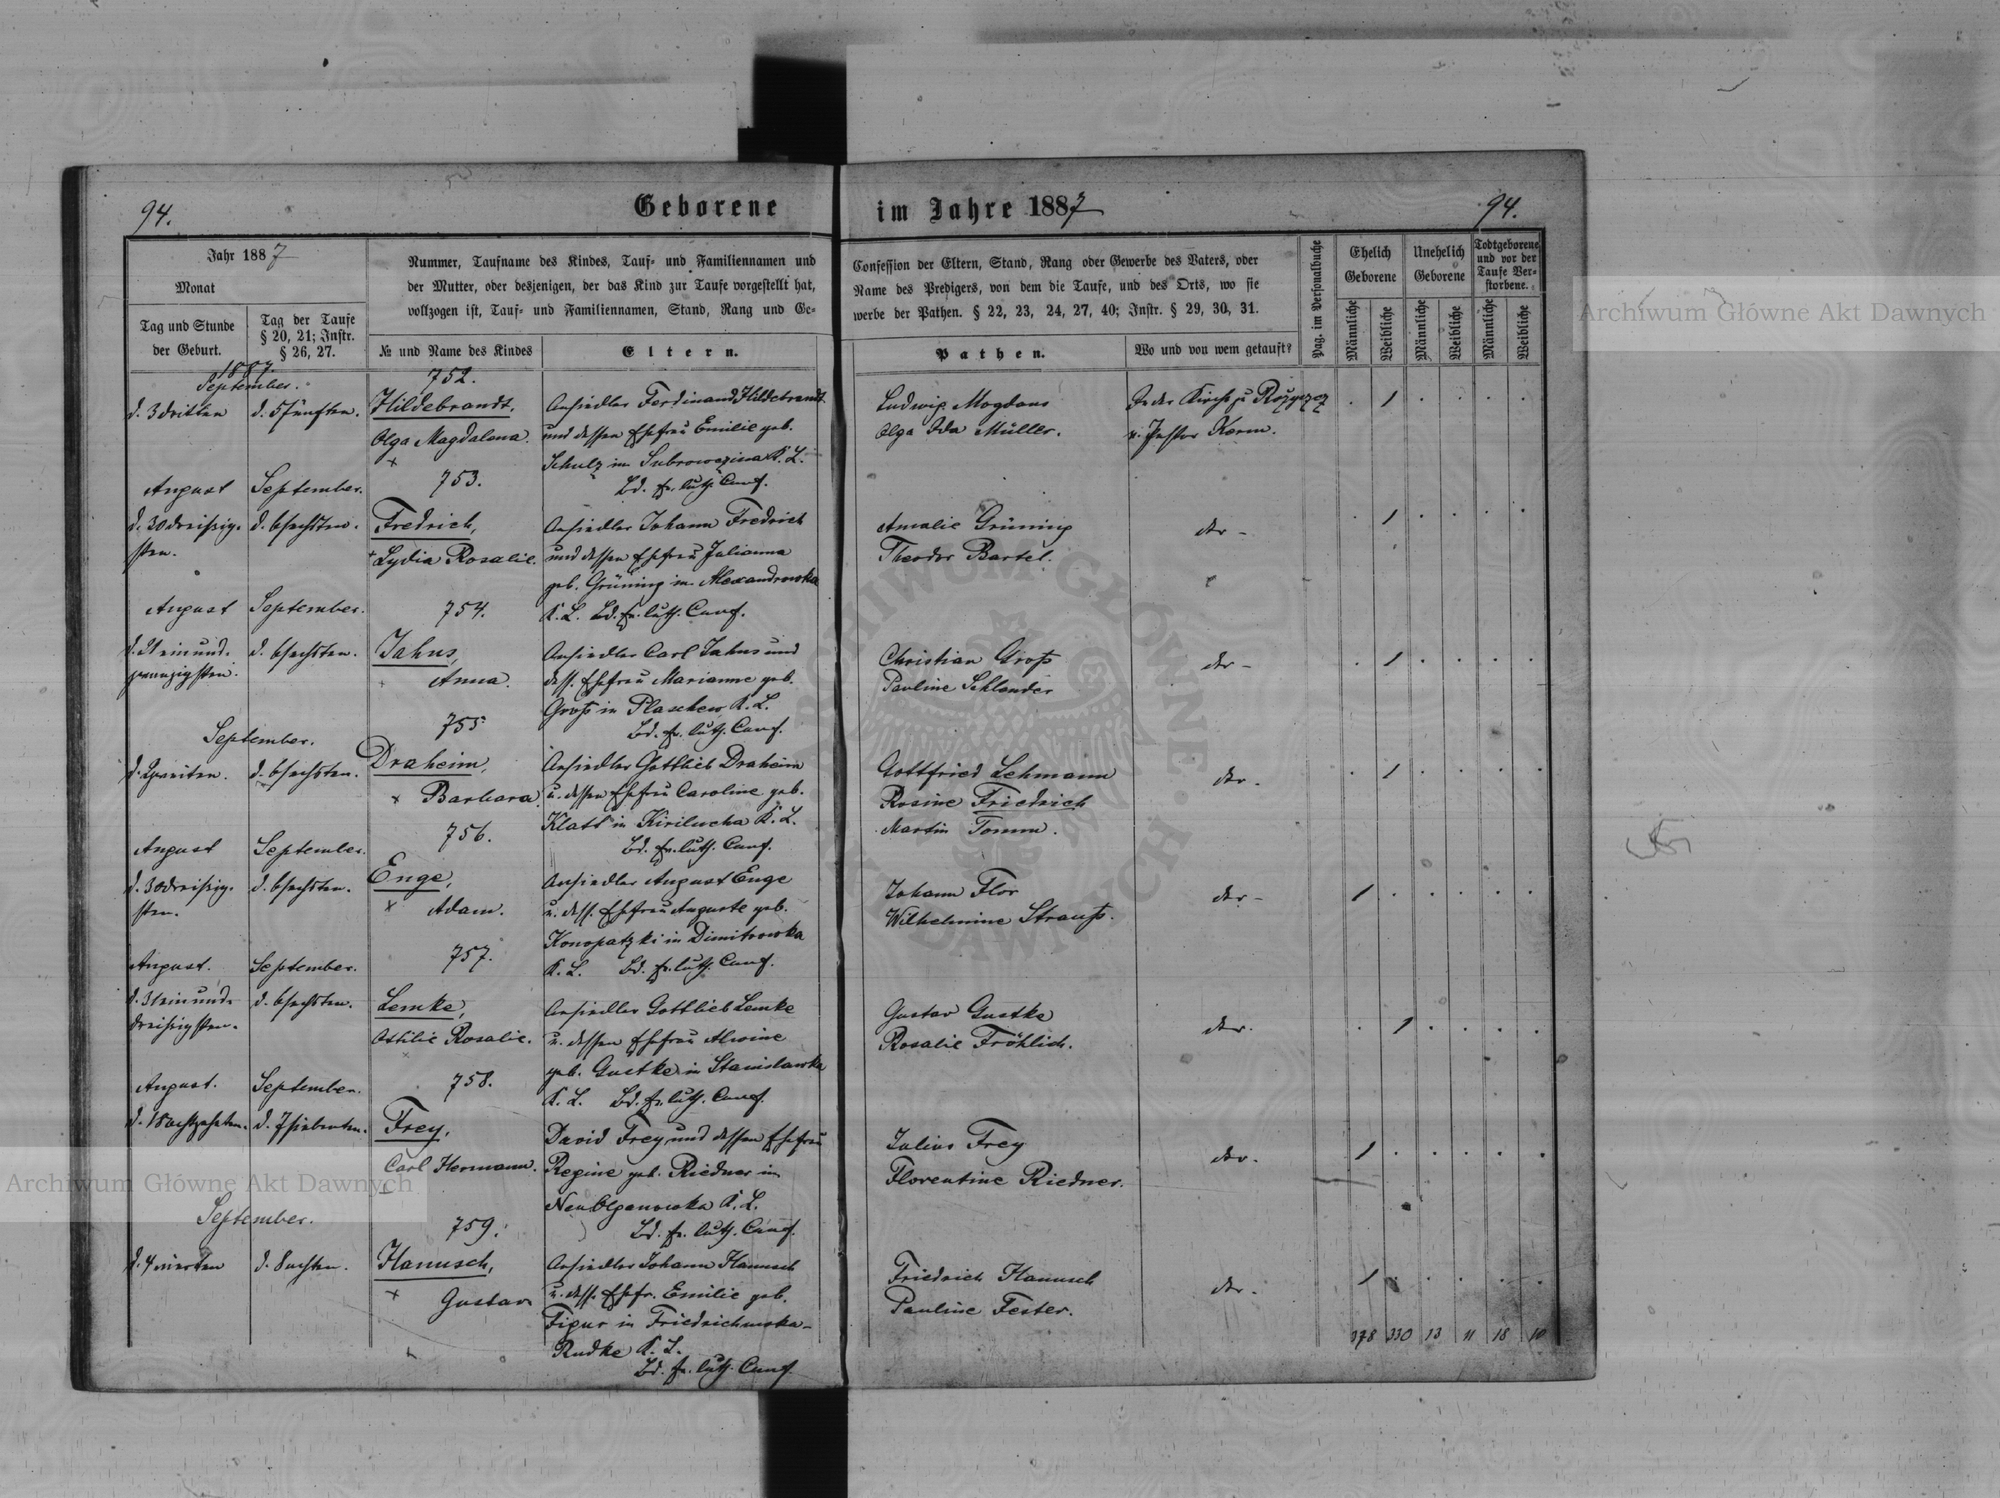 94.
Geborene
im Jahre 1887
94.
Jahr 1887
Monat
Tag und Stunde
der Geburt.
Tag der Taufe
§ 20, 21; Instr.
§ 26, 27.
Nummer, Taufname des Kindes, Tauf- und Familiennamen und
der Mutter, oder desjenigen, der das Kind zur Taufe vorgestellt hat,
vollzogen ist, Tauf- und Familiennamen, Stand, Rang und Ge-
№ und Name des Kindes
Eltern.
Confession der Eltern, Stand, Rang oder Gewerbe des Vaters, oder
Name des Predigers, von dem die Taufe, und des Orts, wo sie
werbe der Pathen. § 22, 23, 24, 27, 40; Instr. § 29, 30, 31.
Pathen.
Wo und von wem getauft?
Pag. im Personalbuche
Ehelich
Geborene
Unehelich
Geborene
Todtgeborene
und vor der
Taufe Ver-
storbene.
Männliche
Weibliche
Männliche
Weibliche
Männliche
Weibliche
1887.
September.
d. 3 dritten
d. 5 fünften.
752.
Hildebrandt,
Olga Magdalena.
Ansiedler Ferdinand Hildebrandt
und dessen Ehefrau Emilie geb.
Schulz in K. L.
Bd. ev. luth. Conf.
Ludwig Mogdans
Olga Ida Müller.
In der Kirche zu Rożyszcz
v. Pastor Kerm.
August
d. 30 dreißig-
sten.
September.
d. 6 sechsten.
753.
Fredrich,
Lydia Rosalie.
Ansiedler Johann Fredrich
und dessen Ehefrau Julianna
geb. Grüning in Alexandrowka
K. L. Bd. ev. luth. Conf.
Amalie Grüning
Theodor Bartel.
der -
August
d. 21 einund-
zwanzigsten.
September.
d. 6 sechsten.
754.
Jahns,
Anna.
Ansiedler Carl Jahns und
dess. Ehefrau Marianne geb.
Groß in Plaschew K. L.
Bd. ev. luth. Conf.
Christian Groß
Pauline Schlender
der -
September.
d. 2 zweiten.
d. 6 sechsten.
755
Draheim,
Barbara.
Ansiedler Gottlieb Draheim
u. dessen Ehefrau Caroline geb.
Klatt in Kirilucha K. L.
Bd. ev. luth. Conf.
Gottfried Lehmann
Rosine Friedrich
Martin Tomm.
der -
August
d. 30 dreißig-
sten.
September.
d. 6 sechsten.
756.
Enge,
Adam.
Ansiedler August Enge
u. dess. Ehefrau Auguste geb.
Konopatzki in Dimitrowka
K. L. Bd. ev. luth. Conf.
Johann Flor
Wilhelmine Strauß.
der -
August.
d. 31 einund-
dreißigsten.
September.
d. 6 sechsten.
757.
Lemke,
Ottilie Rosalie.
Ansiedler Gottlieb Lemke
u. dessen Ehefrau Alwine
geb. Gustke in Stanislawka
K. L. Bd. ev. luth. Conf.
Gustav Gustke
Rosalie Fröhlich.
der.
August.
d. 18 achtzehnten.
September.
d. 7 siebenten.
758.
Frey,
Carl Hermann.
David Frey und dessen Ehefrau
Regine geb. Riedner in
Neu Olganowka K. L.
Bd. ev. luth. Conf.
Julius Frey
Florentine Riedner.
der.
September.
d. 4 vierten
d. 8 achten.
759.
Hanusch,
Gustav
Ansiedler Johann Hanusch
u. dess. Ehefr. Emilie geb.
Figur in Friedrichowka-
Rudke K. L.
Bd. ev. luth. Conf.
Friedrich Hanusch
Pauline Fester.
der.
378 330 13 11 18 10
Archiwum Główne Akt Dawnych
Archiwum Główne Akt Dawnych
ARCHIWUM GŁÓWNE AKT DAWNYCH